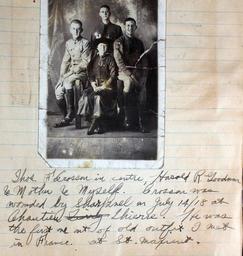 Thos F Crosson in centre, Harold R Goodman
& Mother & Myself. Crosson was
wounded by Shrapnel on July 14/18 at
Chantieu Thierrie. He was
the first one of old outfit I met
in France. at St.